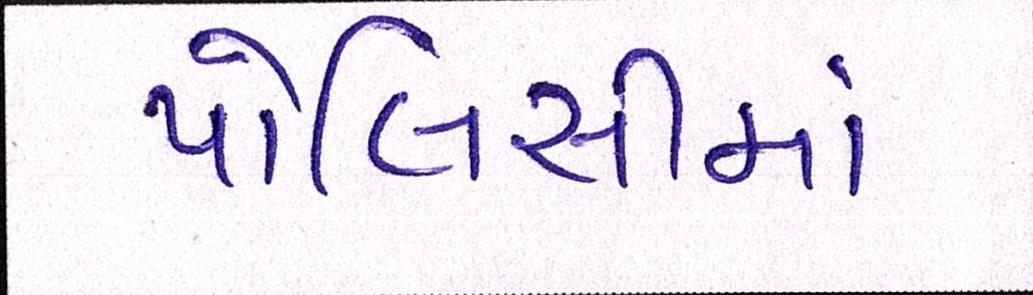 પોલિસીમાં